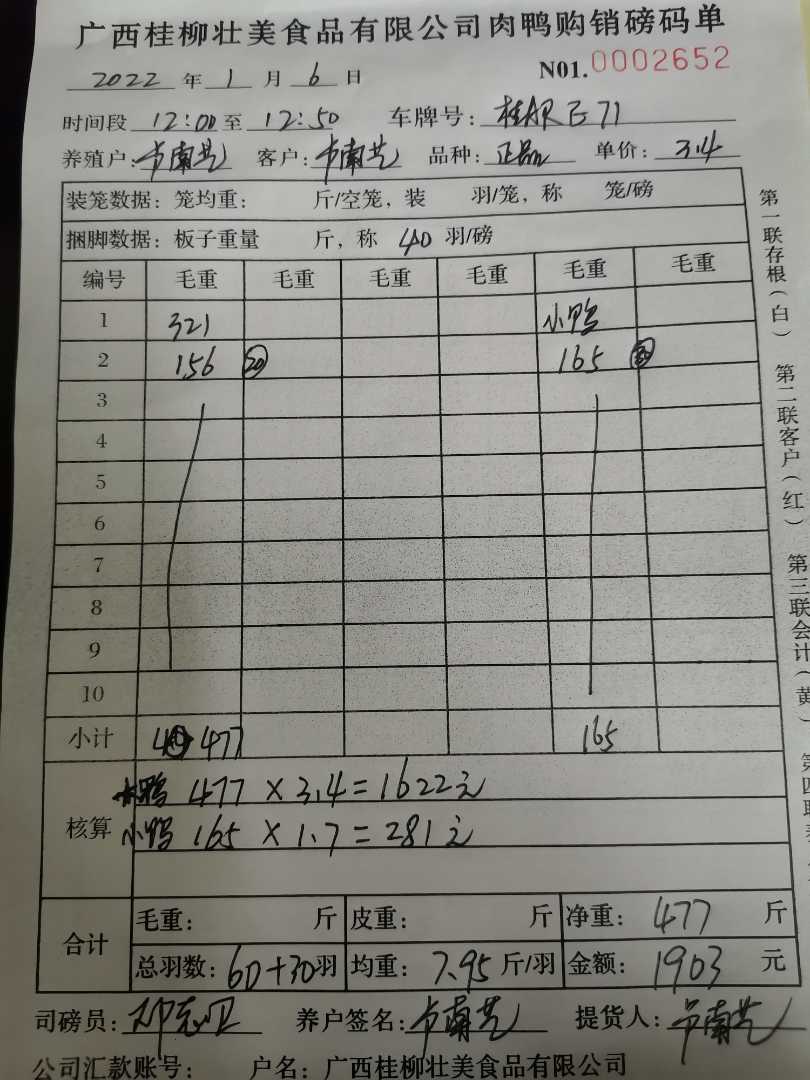 广西桂柳壮美食品有限公司肉鸭购销磅码单
2022 年 1 月 6 日 N01.0002652
时间段 12:00 至 12:50 车牌号: 71
养殖户: 客户: 品种: 正品 单价: 3.4
装笼数据: 笼均重: 斤/空笼, 装 羽/笼, 称 笼/磅
捆脚数据: 板子重量 斤, 称 40 羽/磅
编号 毛重 毛重 毛重 毛重 毛重 毛重
1 321 小鸭
2 156 20 165
3
4
5
6
7
8
9
10
小计 477 165
核算
鸭 477 × 3.4 = 1622元
小鸭 165 × 1.7 = 281元
合计
毛重: 斤 皮重: 斤 净重: 477 斤
总羽数: 60+30羽 均重: 7.95 斤/羽 金额: 1903 元
司磅员: 养户签名: 提货人:
公司汇款账号: 户名: 广西桂柳壮美食品有限公司
第一联存根(白)
第二联客户(红)
第三联会计(黄)
第四联